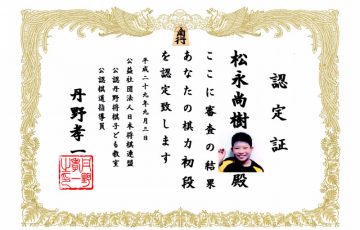 認定証
松永尚樹殿
ここに審査の結果
あなたの棋力初段
を認定致します
平成二十九年九月三日
公益社団法人日本将棋連盟
公認丹野将棋子ども教室
公認棋道指導員
丹野孝一